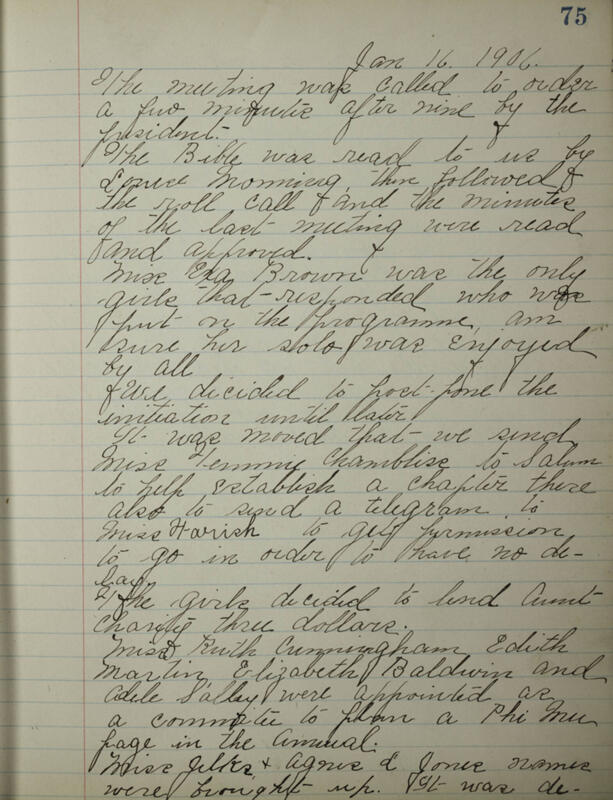 75
Jan 16. 1906.
The meeting was called to order
a few minutes after nine by the
president.
The Bible was read to us by
Louise Monning, then followed
the roll call and the minutes
of the last meeting were read
and approved.
Miss Era Brown was the only
girls that responded who was
put on the programme, am
sure her solo was enjoyed
by all
We decided to post-pone the
initiation until later
It was moved that we send
Miss Temmie Chambliss to Salem
to help establish a chapter there
also to send a telegram to
Miss Harish to get permission
to go in order to have no de-
lay.
The girls decided to lend Aunt
Charity three dollars.
Miss Ruth Cunningham, Edith
Martin, Elizabeth Baldwin and
Adele Salley were appointed as
a committe to plan a Phi Mu
page in the Annual.
Miss Jelks + Agnes C Jones names
were brought up. It was de-